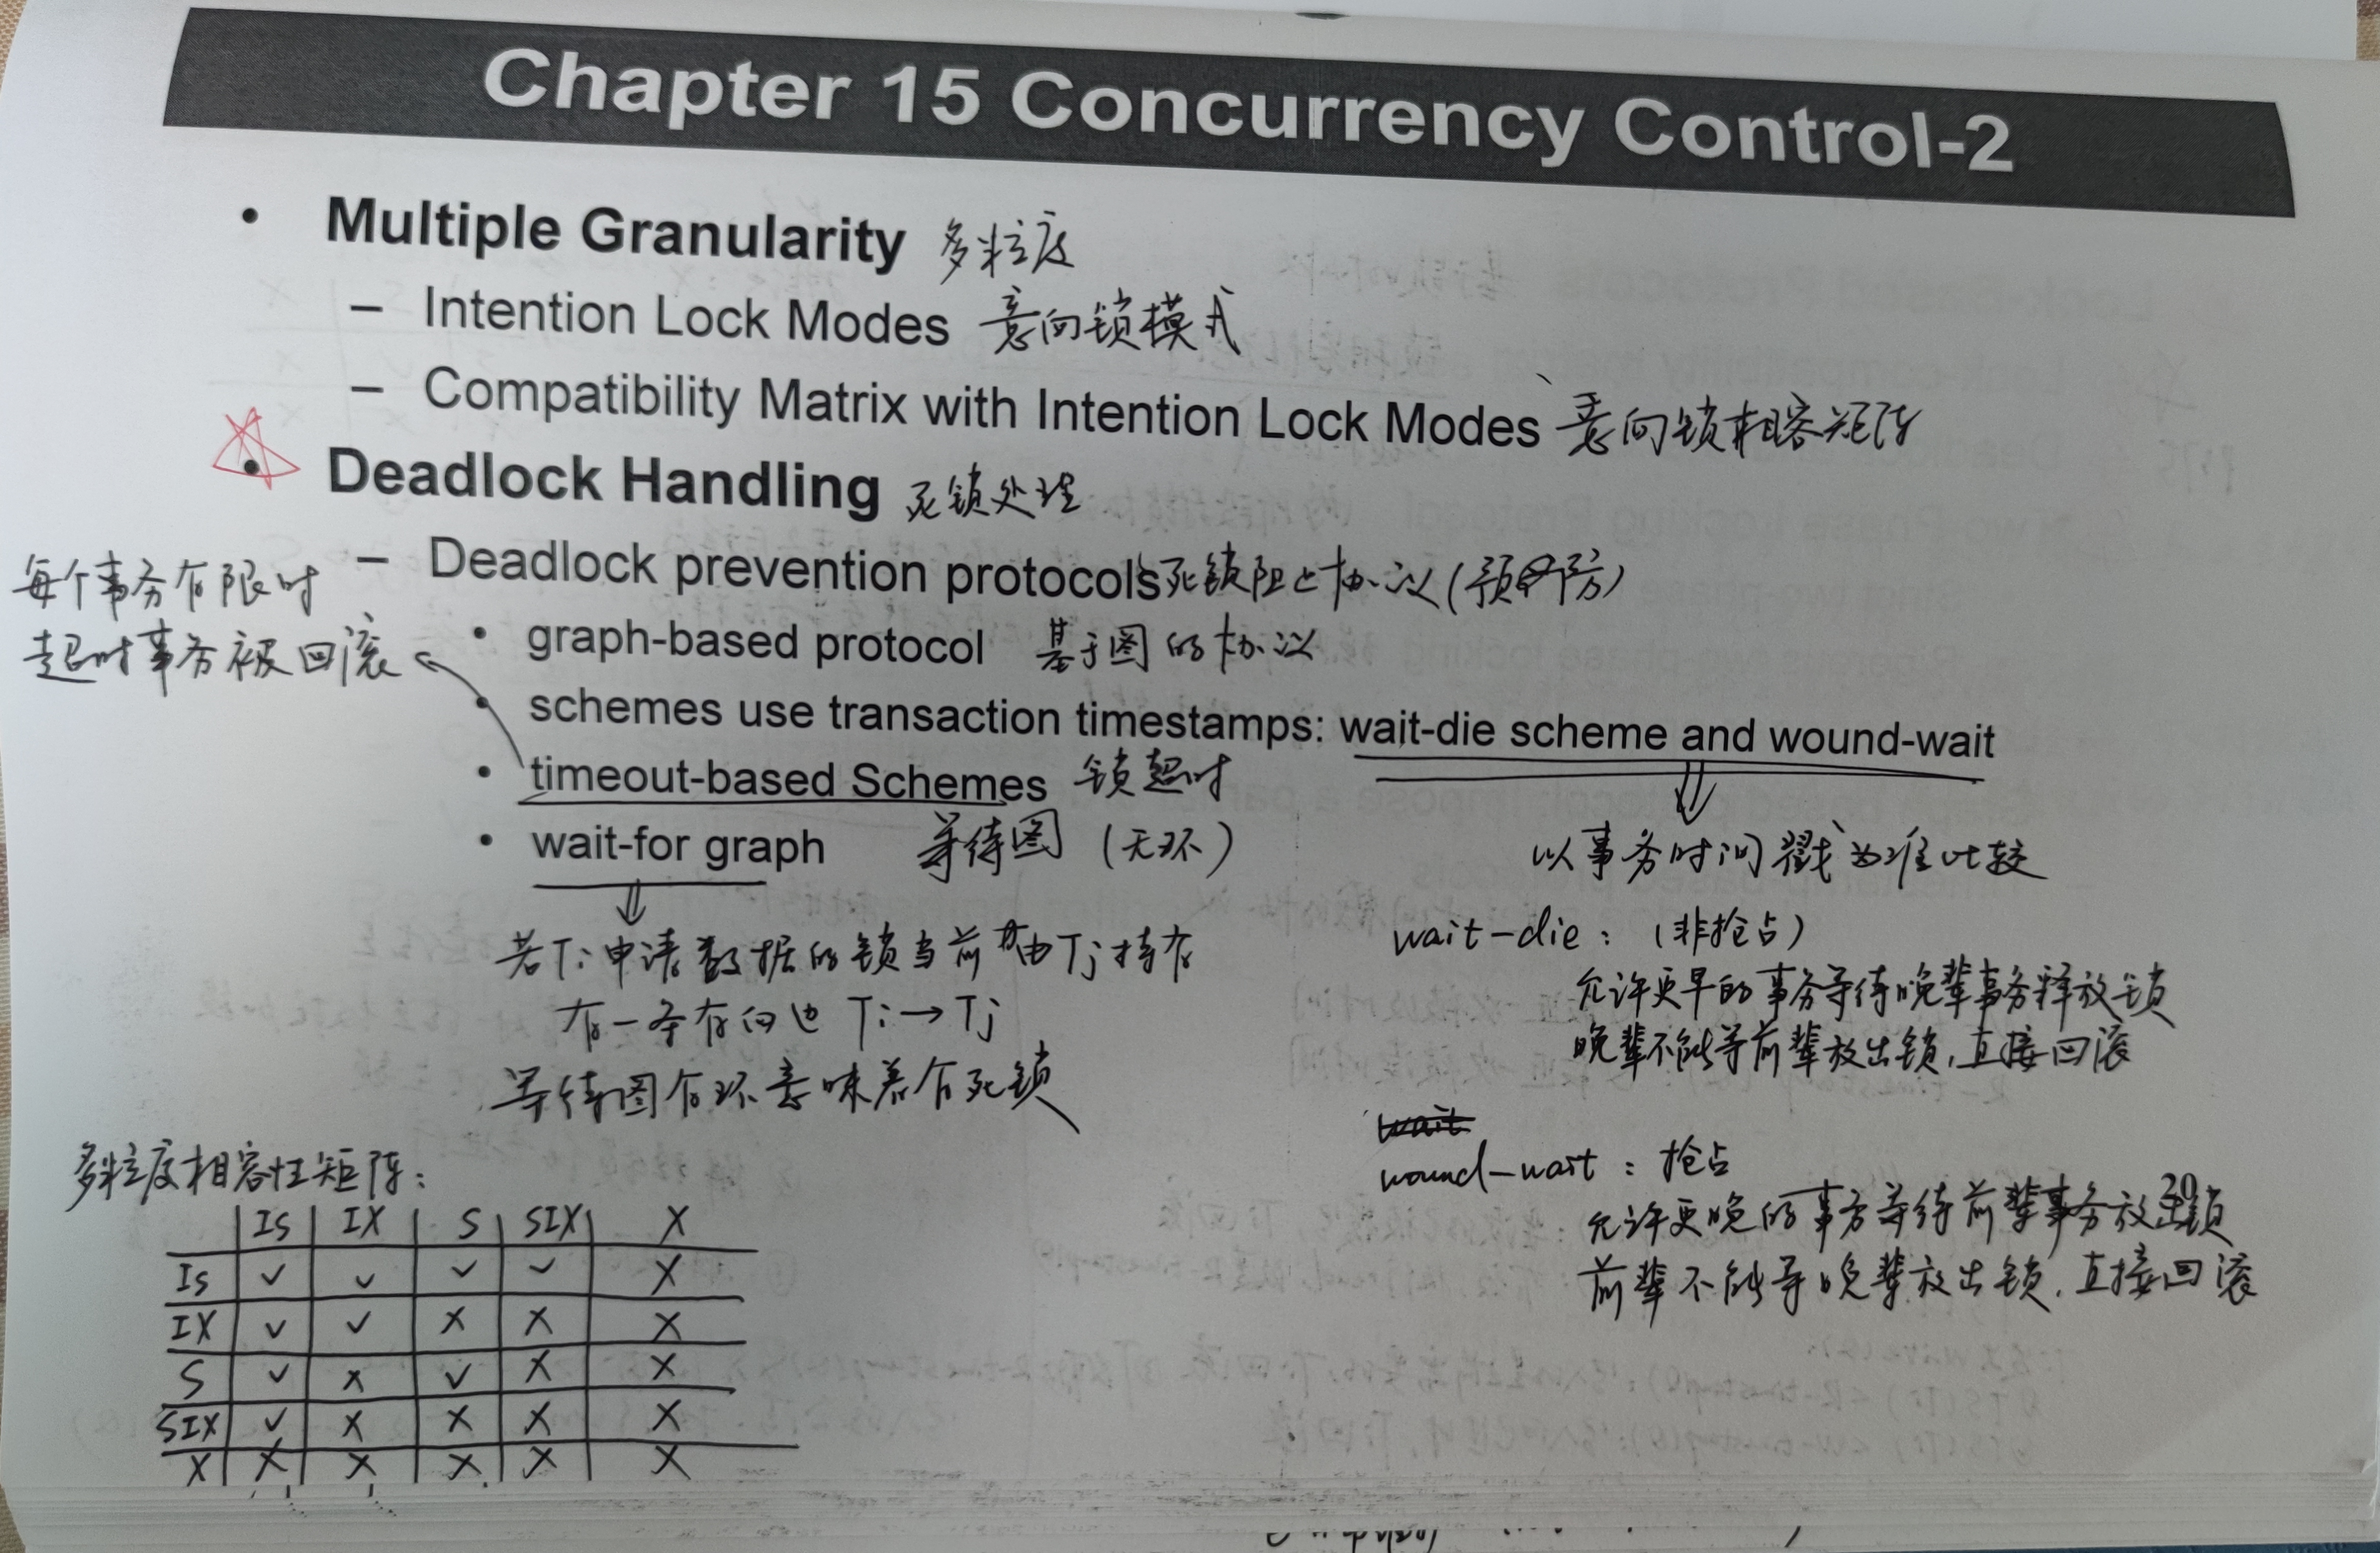 Chapter 15 Concurrency Control-2
• Multiple Granularity 多粒度
– Intention Lock Modes 意向锁模式
– Compatibility Matrix with Intention Lock Modes 意向锁相容矩阵
• Deadlock Handling 死锁处理
– Deadlock prevention protocols 死锁阻止协议(预防)
• graph-based protocol 基于图的协议
• schemes use transaction timestamps: wait-die scheme and wound-wait
• timeout-based Schemes 锁超时
• wait-for graph 等待图 (无环)
每个事务有限时
超时事务被回滚
若Ti申请数据的锁当前由Tj持有
有一条有向边 Ti→Tj
等待图有环意味着有死锁
以事务时间戳为准比较
wait-die: (非抢占)
允许更早的事务等待晚辈事务释放锁
晚辈不能等前辈放出锁,直接回滚
wait
wound-wait: 抢占
允许更晚的事务等待前辈事务放出锁
前辈不能等晚辈放出锁,直接回滚
20
多粒度相容性矩阵:
IS IX S SIX X
IS ✓ ✓ ✓ ✓ X
IX ✓ ✓ X X X
S ✓ X ✓ X X
SIX ✓ X X X X
X X X X X X